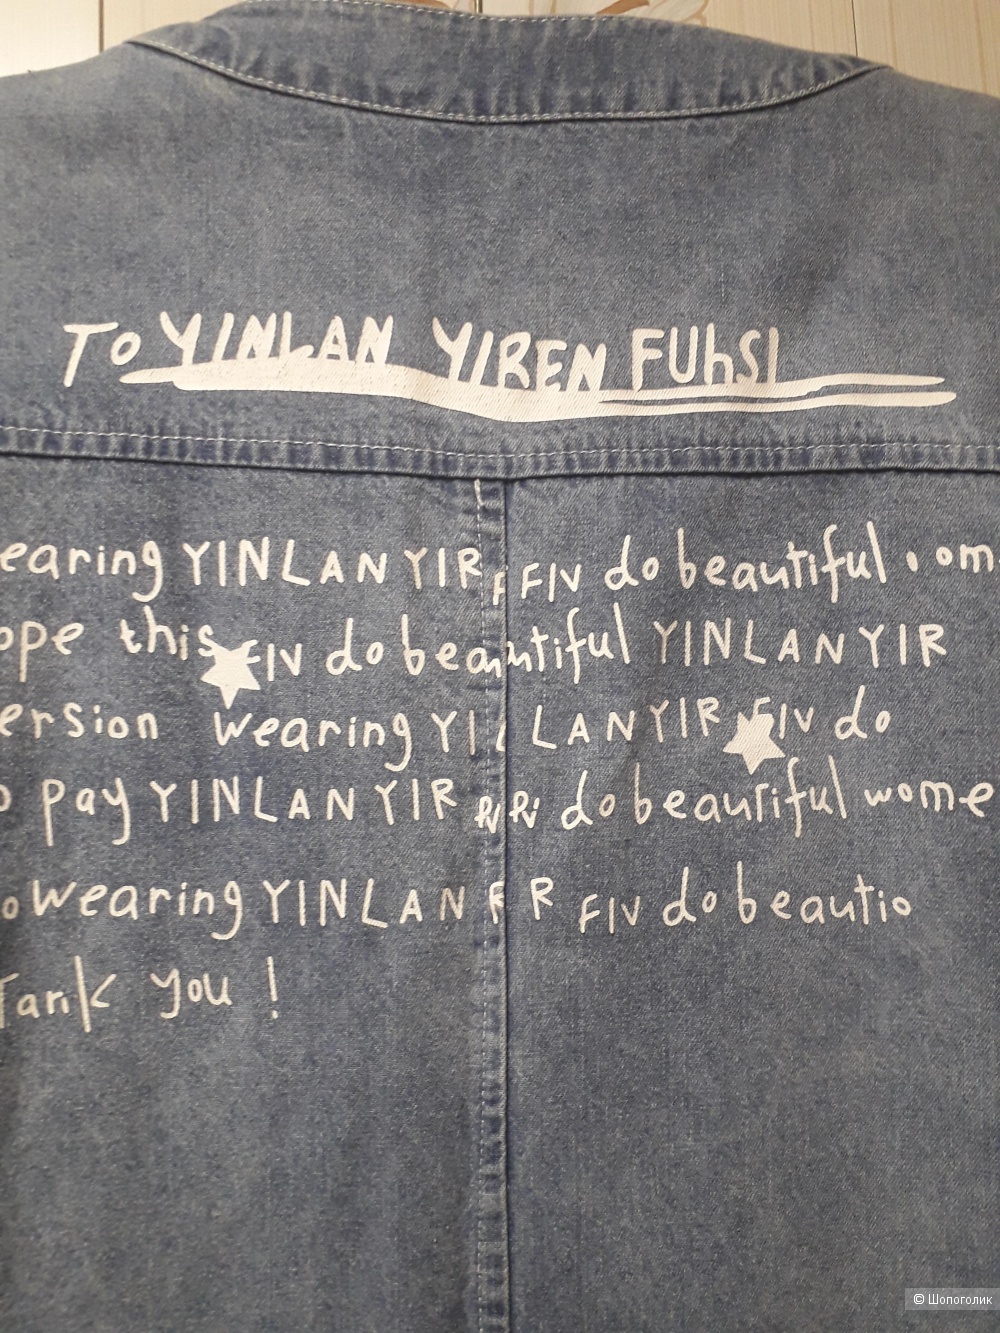 To YINLAN YIREN FUhSI
earing YINLANYIR FIV do beautiful om
ope this FIV do beautiful YINLANYIR
ersion wearing YI LANYIR FIV do
o pay YINLANYIR do beautiful wome
o wearing YINLAN R FIV do beautio
Tank you !
© Шопоголик